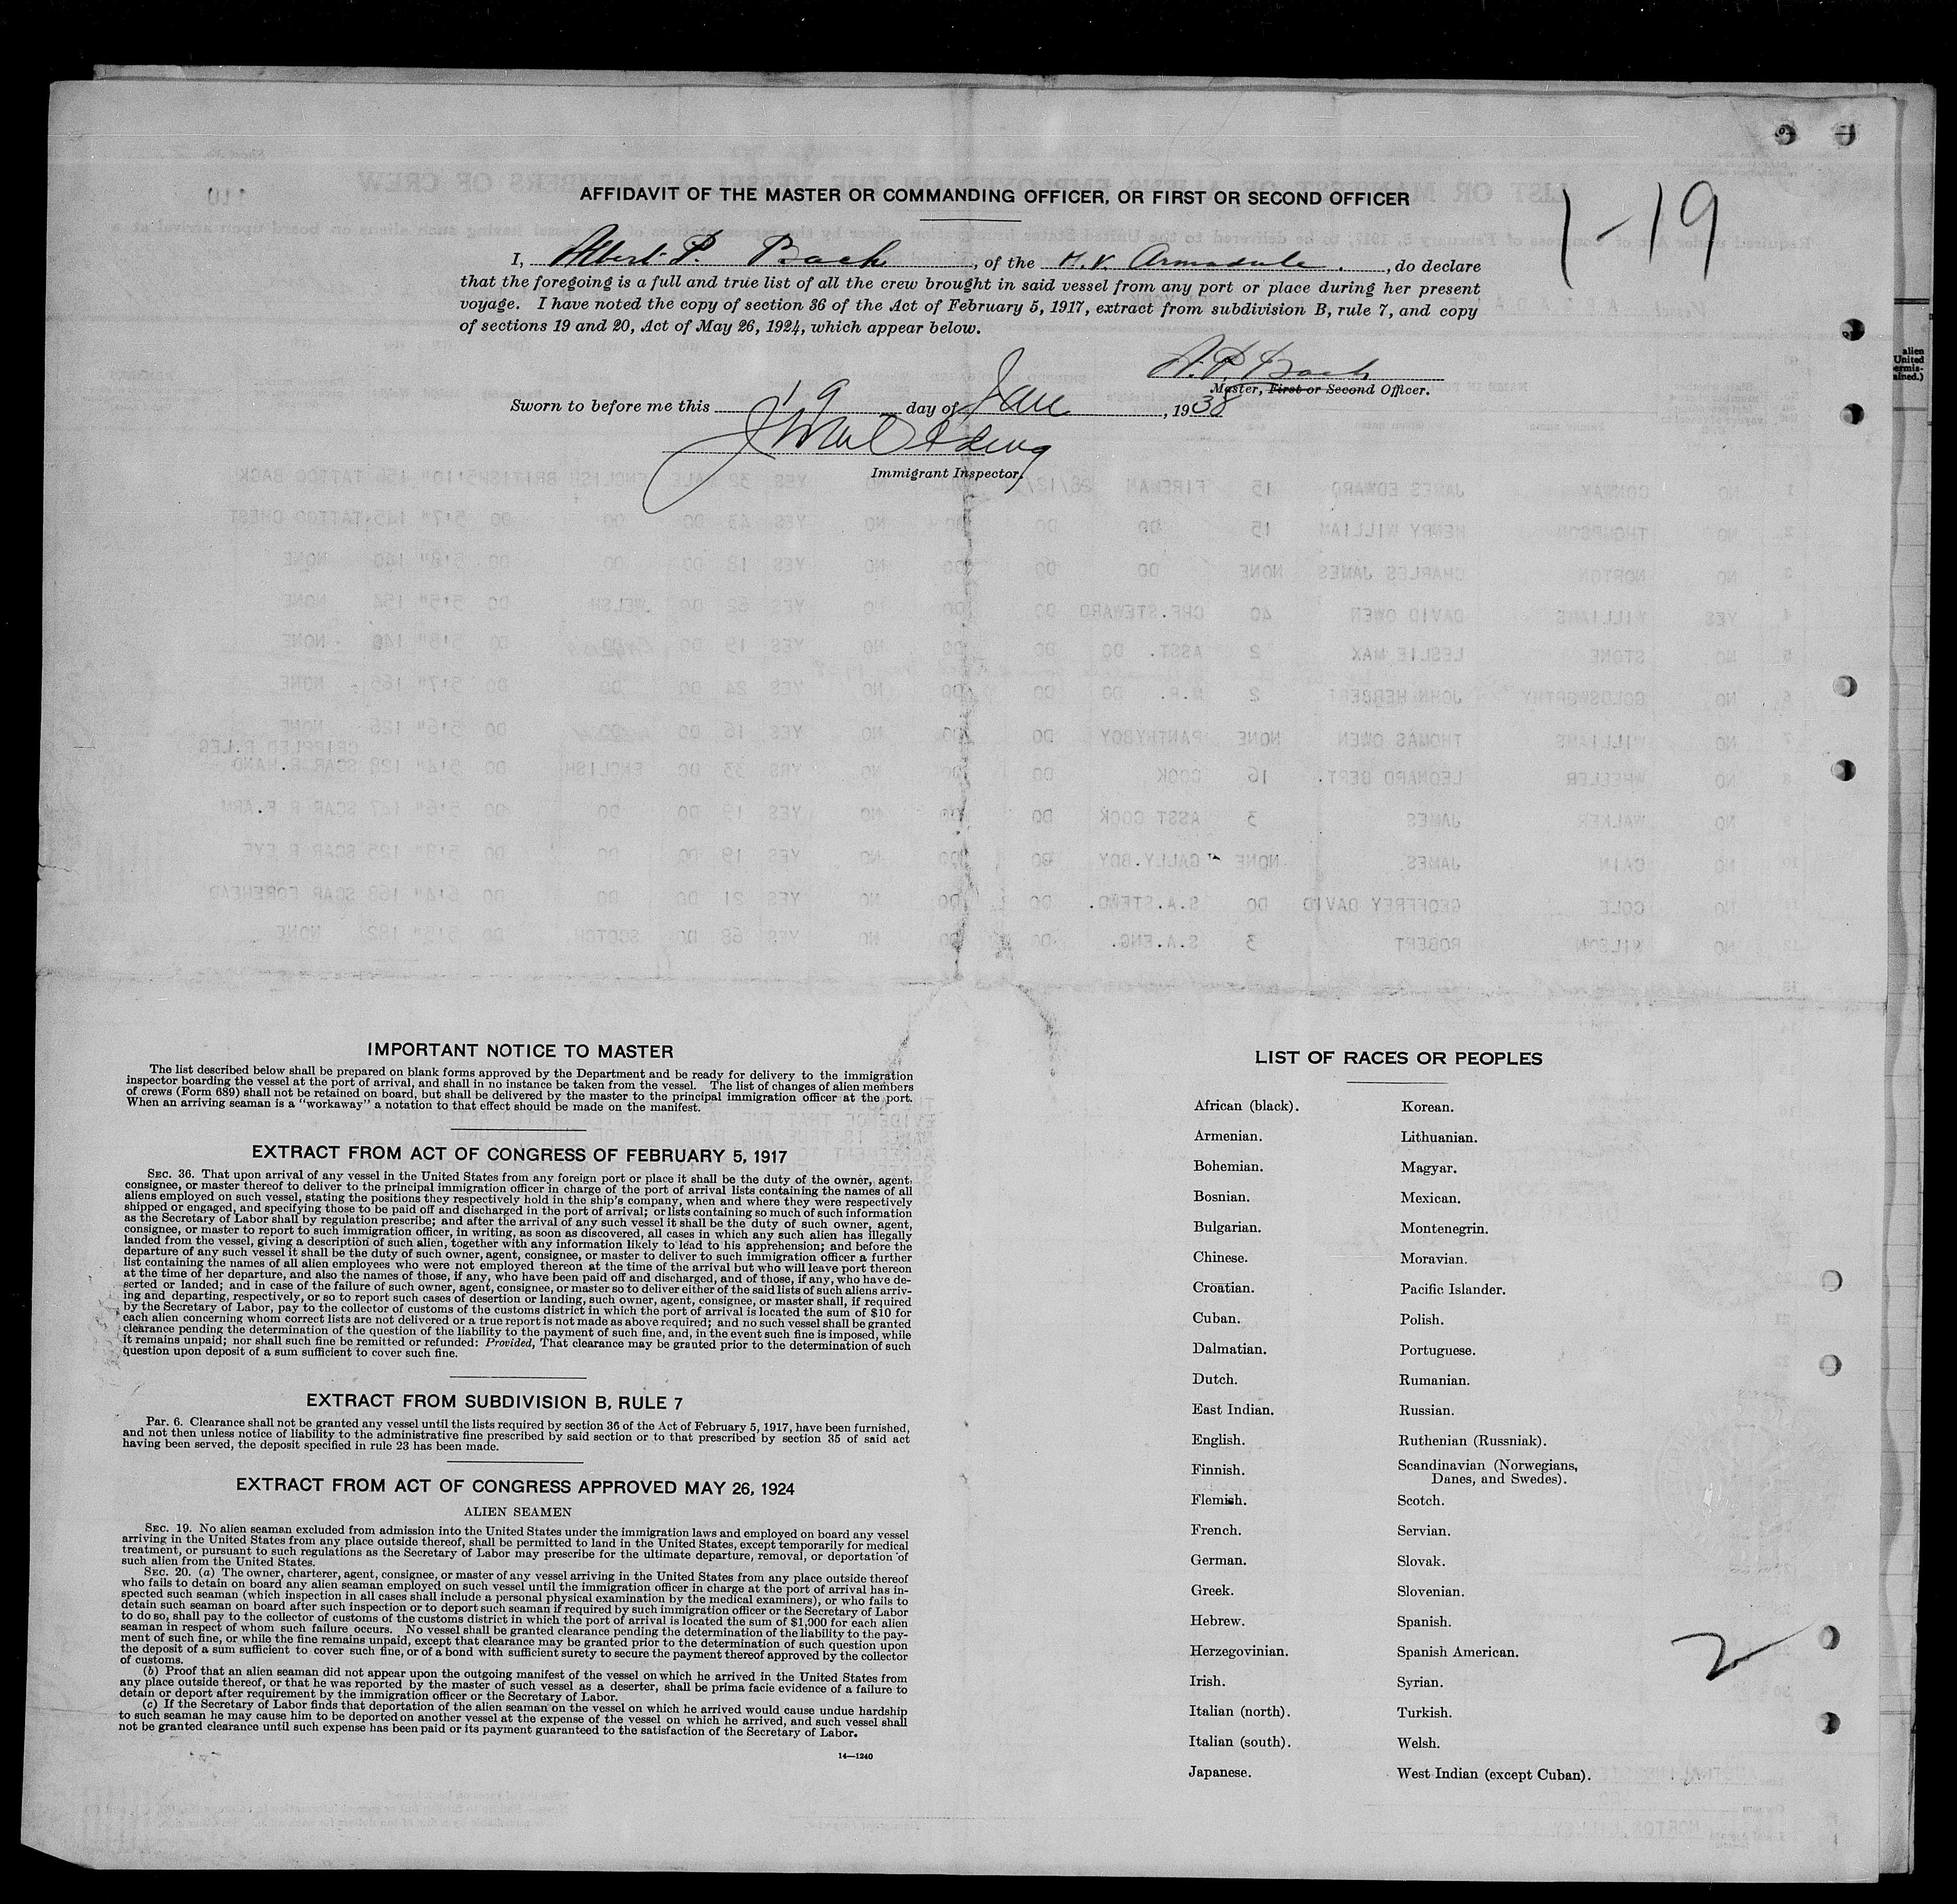 AFFIDAVIT OF THE MASTER OR COMMANDING OFFICER, OR FIRST OR SECOND OFFICER
1-19
I, Albert P. Bach, of the M.V. Armadale., do declare
that the foregoing is a full and true list of all the crew brought in said vessel from any port or place during her present
voyage. I have noted the copy of section 36 of the Act of February 5, 1917, extract from subdivision B, rule 7, and copy
of sections 19 and 20, Act of May 26, 1924, which appear below.
A. P. Bach
Master, First or Second Officer.
Sworn to before me this 19 day of Jan, 1938
Immigrant Inspector.
alien
United
ermis-
ained.)
IMPORTANT NOTICE TO MASTER
The list described below shall be prepared on blank forms approved by the Department and be ready for delivery to the immigration
inspector boarding the vessel at the port of arrival, and shall in no instance be taken from the vessel. The list of changes of alien members
of crews (Form 689) shall not be retained on board, but shall be delivered by the master to the principal immigration officer at the port.
When an arriving seaman is a "workaway" a notation to that effect should be made on the manifest.
EXTRACT FROM ACT OF CONGRESS OF FEBRUARY 5, 1917
SEC. 36. That upon arrival of any vessel in the United States from any foreign port or place it shall be the duty of the owner, agent,
consignee, or master thereof to deliver to the principal immigration officer in charge of the port of arrival lists containing the names of all
aliens employed on such vessel, stating the positions they respectively hold in the ship's company, when and where they were respectively
shipped or engaged, and specifying those to be paid off and discharged in the port of arrival; or lists containing so much of such information
as the Secretary of Labor shall by regulation prescribe; and after the arrival of any such vessel it shall be the duty of such owner, agent,
consignee, or master to report to such immigration officer, in writing, as soon as discovered, all cases in which any such alien has illegally
landed from the vessel, giving a description of such alien, together with any information likely to lead to his apprehension; and before the
departure of any such vessel it shall be the duty of such owner, agent, consignee, or master to deliver to such immigration officer a further
list containing the names of all alien employees who were not employed thereon at the time of the arrival but who will leave port thereon
at the time of her departure, and also the names of those, if any, who have been paid off and discharged, and of those, if any, who have de-
serted or landed; and in case of the failure of such owner, agent, consignee, or master so to deliver either of the said lists of such aliens arriv-
ing and departing, respectively, or so to report such cases of desertion or landing, such owner, agent, consignee, or master shall, if required
by the Secretary of Labor, pay to the collector of customs of the customs district in which the port of arrival is located the sum of $10 for
each alien concerning whom correct lists are not delivered or a true report is not made as above required; and no such vessel shall be granted
clearance pending the determination of the question of the liability to the payment of such fine, and, in the event such fine is imposed, while
it remains unpaid; nor shall such fine be remitted or refunded: Provided, That clearance may be granted prior to the determination of such
question upon deposit of a sum sufficient to cover such fine.
EXTRACT FROM SUBDIVISION B, RULE 7
Par. 6. Clearance shall not be granted any vessel until the lists required by section 36 of the Act of February 5, 1917, have been furnished,
and not then unless notice of liability to the administrative fine prescribed by said section or to that prescribed by section 35 of said act
having been served, the deposit specified in rule 23 has been made.
EXTRACT FROM ACT OF CONGRESS APPROVED MAY 26, 1924
ALIEN SEAMEN
SEC. 19. No alien seaman excluded from admission into the United States under the immigration laws and employed on board any vessel
arriving in the United States from any place outside thereof, shall be permitted to land in the United States, except temporarily for medical
treatment, or pursuant to such regulations as the Secretary of Labor may prescribe for the ultimate departure, removal, or deportation of
such alien from the United States.
SEC. 20. (a) The owner, charterer, agent, consignee, or master of any vessel arriving in the United States from any place outside thereof
who fails to detain on board any alien seaman employed on such vessel until the immigration officer in charge at the port of arrival has in-
spected such seaman (which inspection in all cases shall include a personal physical examination by the medical examiners), or who fails to
detain such seaman on board after such inspection or to deport such seaman if required by such immigration officer or the Secretary of Labor
to do so, shall pay to the collector of customs of the customs district in which the port of arrival is located the sum of $1,000 for each alien
seaman in respect of whom such failure occurs. No vessel shall be granted clearance pending the determination of the liability to the pay-
ment of such fine, or while the fine remains unpaid, except that clearance may be granted prior to the determination of such question upon
the deposit of a sum sufficient to cover such fine, or of a bond with sufficient surety to secure the payment thereof approved by the collector
of customs.
(b) Proof that an alien seaman did not appear upon the outgoing manifest of the vessel on which he arrived in the United States from
any place outside thereof, or that he was reported by the master of such vessel as a deserter, shall be prima facie evidence of a failure to
detain or deport after requirement by the immigration officer or the Secretary of Labor.
(c) If the Secretary of Labor finds that deportation of the alien seaman on the vessel on which he arrived would cause undue hardship
to such seaman he may cause him to be deported on another vessel at the expense of the vessel on which he arrived, and such vessel shall
not be granted clearance until such expense has been paid or its payment guaranteed to the satisfaction of the Secretary of Labor.
14—1240
LIST OF RACES OR PEOPLES
African (black).
Armenian.
Bohemian.
Bosnian.
Bulgarian.
Chinese.
Croatian.
Cuban.
Dalmatian.
Dutch.
East Indian.
English.
Finnish.
Flemish.
French.
German.
Greek.
Hebrew.
Herzegovinian.
Irish.
Italian (north).
Italian (south).
Japanese.
Korean.
Lithuanian.
Magyar.
Mexican.
Montenegrin.
Moravian.
Pacific Islander.
Polish.
Portuguese.
Rumanian.
Russian.
Ruthenian (Russniak).
Scandinavian (Norwegians,
Danes, and Swedes).
Scotch.
Servian.
Slovak.
Slovenian.
Spanish.
Spanish American.
Syrian.
Turkish.
Welsh.
West Indian (except Cuban).
2